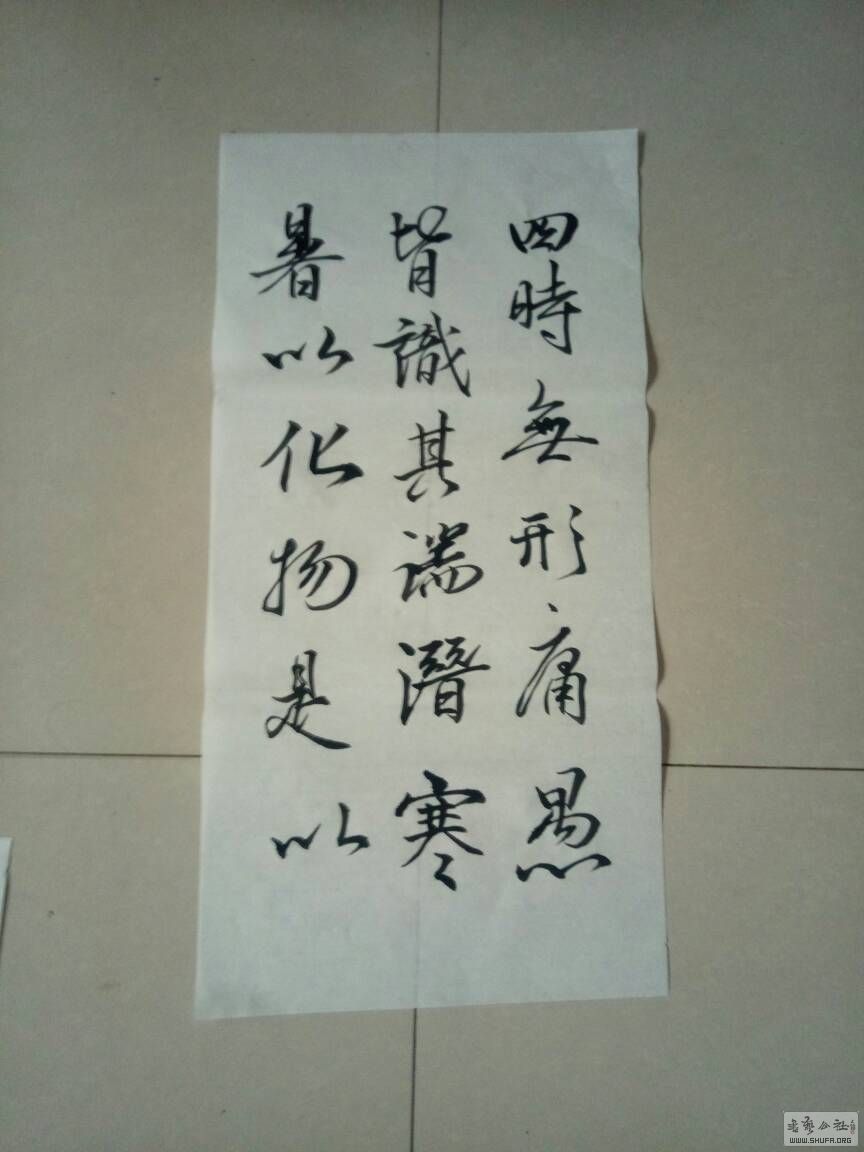 四時無形庸愚
皆識其端潛寒
暑以化物是以
WWW.SHUFA.ORG